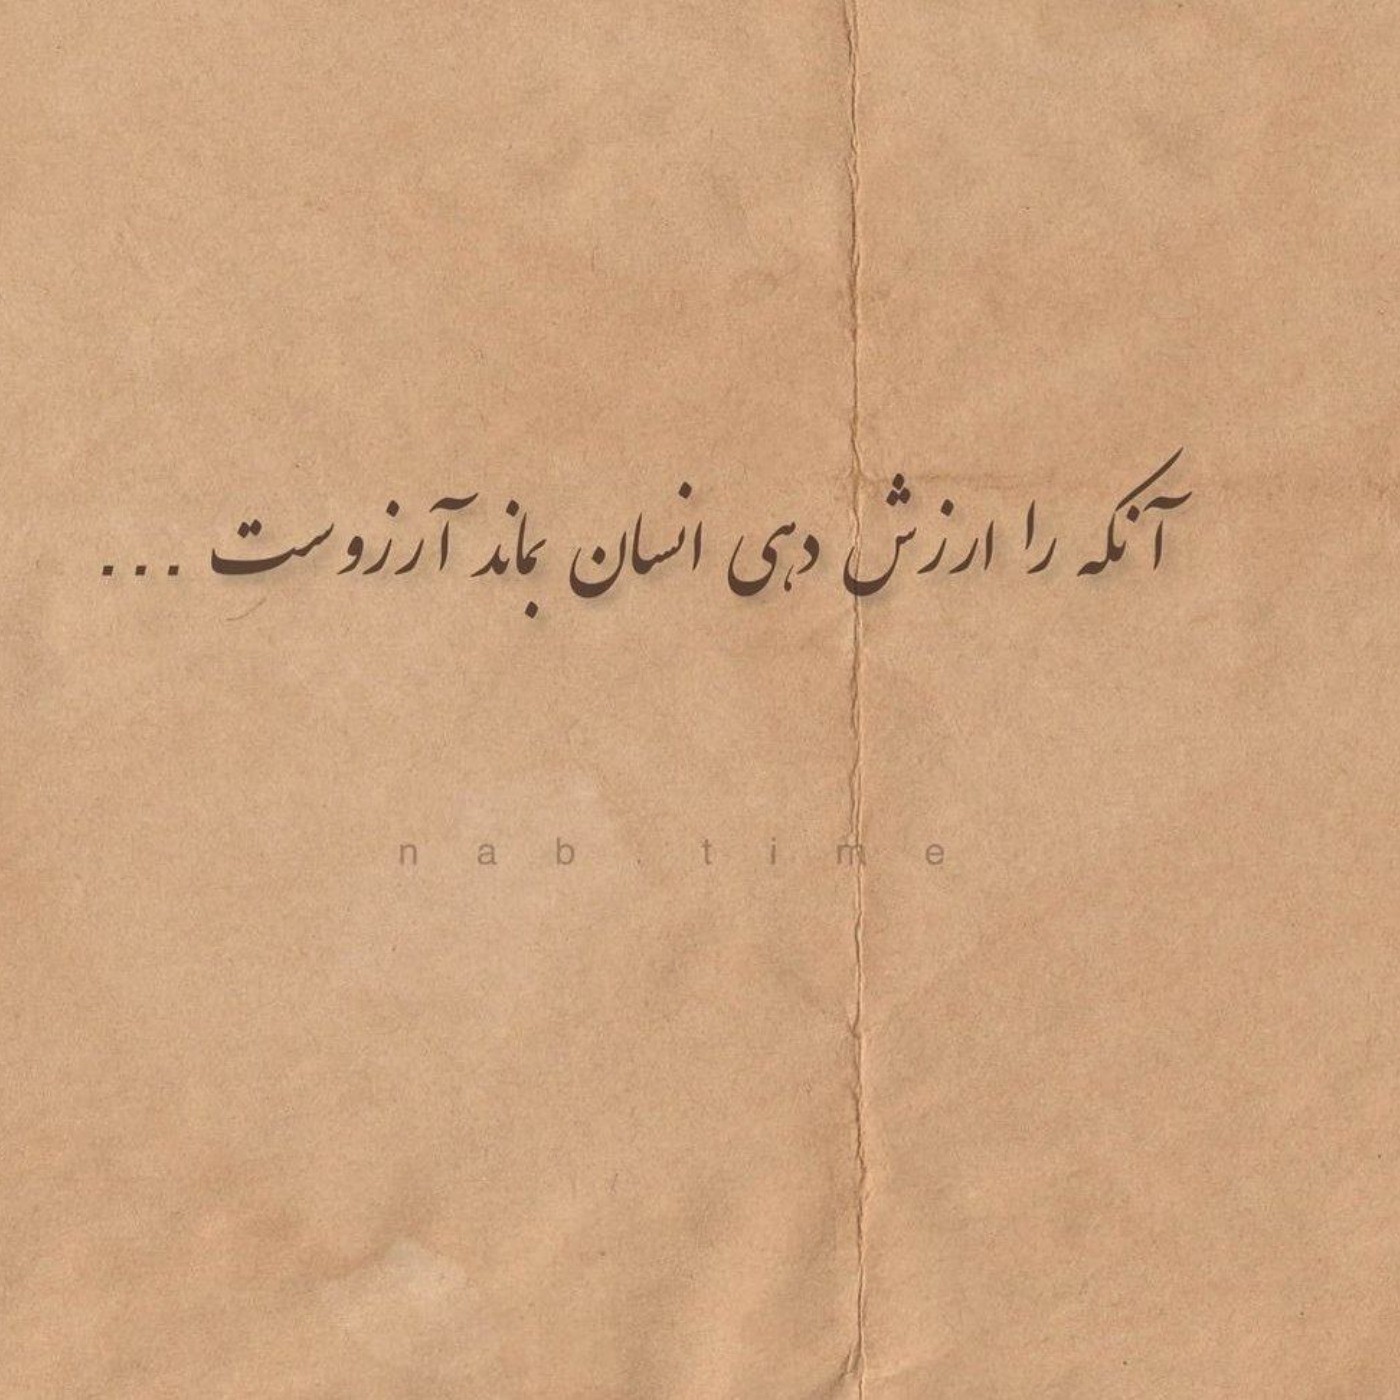 آنکه را ارزش دهی انسان بماند آرزوست ...
nab.time